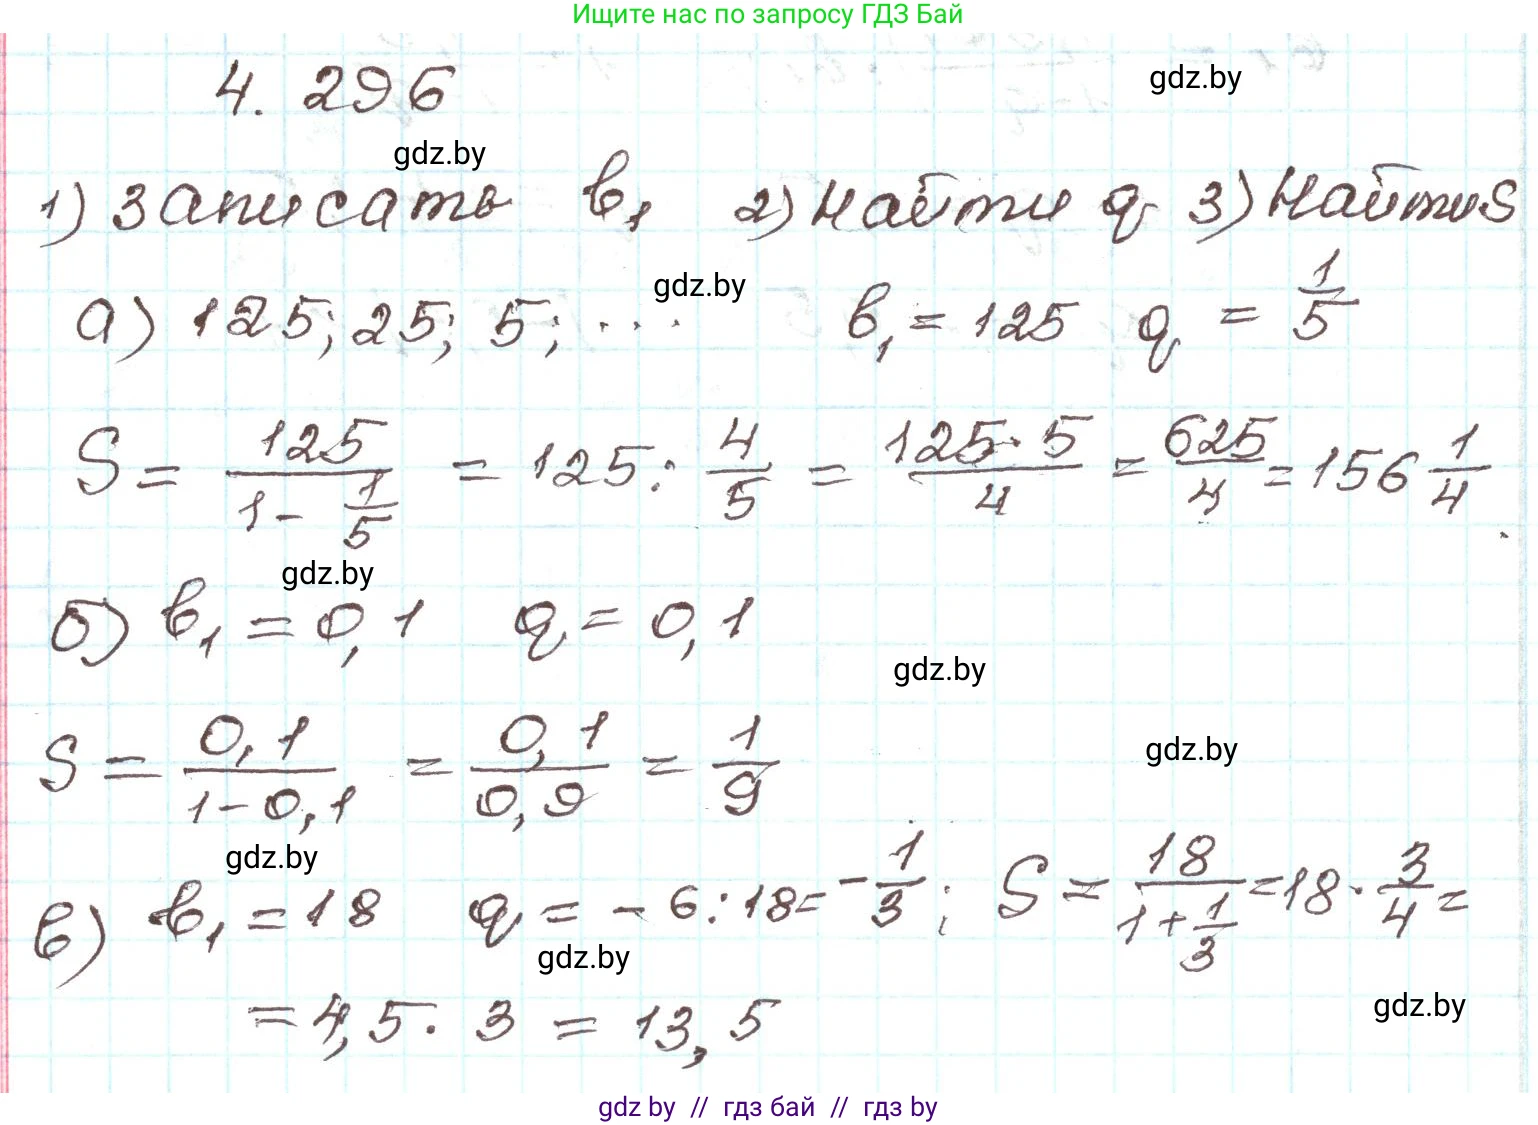 Ищите нас по запросу ГДЗ Бай
4. 296
gdz.by
gdz.by
1) Записать b₁ 2) Найти q 3) Найти S
gdz.by
а) 125; 25; 5; ... b₁ = 125 q = 1/5
S = 125/(1 - 1/5) = 125 : 4/5 = (125 · 5)/4 = 625/4 = 156 1/4
gdz.by
б) b₁ = 0,1 q = 0,1
gdz.by
S = 0,1/(1-0,1) = 0,1/0,9 = 1/9
gdz.by
gdz.by
в) b₁ = 18 q = - 6 : 18 = - 1/3; S = 18/(1 + 1/3) = 18 · 3/4 =
gdz.by
= 4,5 · 3 = 13,5
gdz.by
gdz by // гдз бай // гдз by